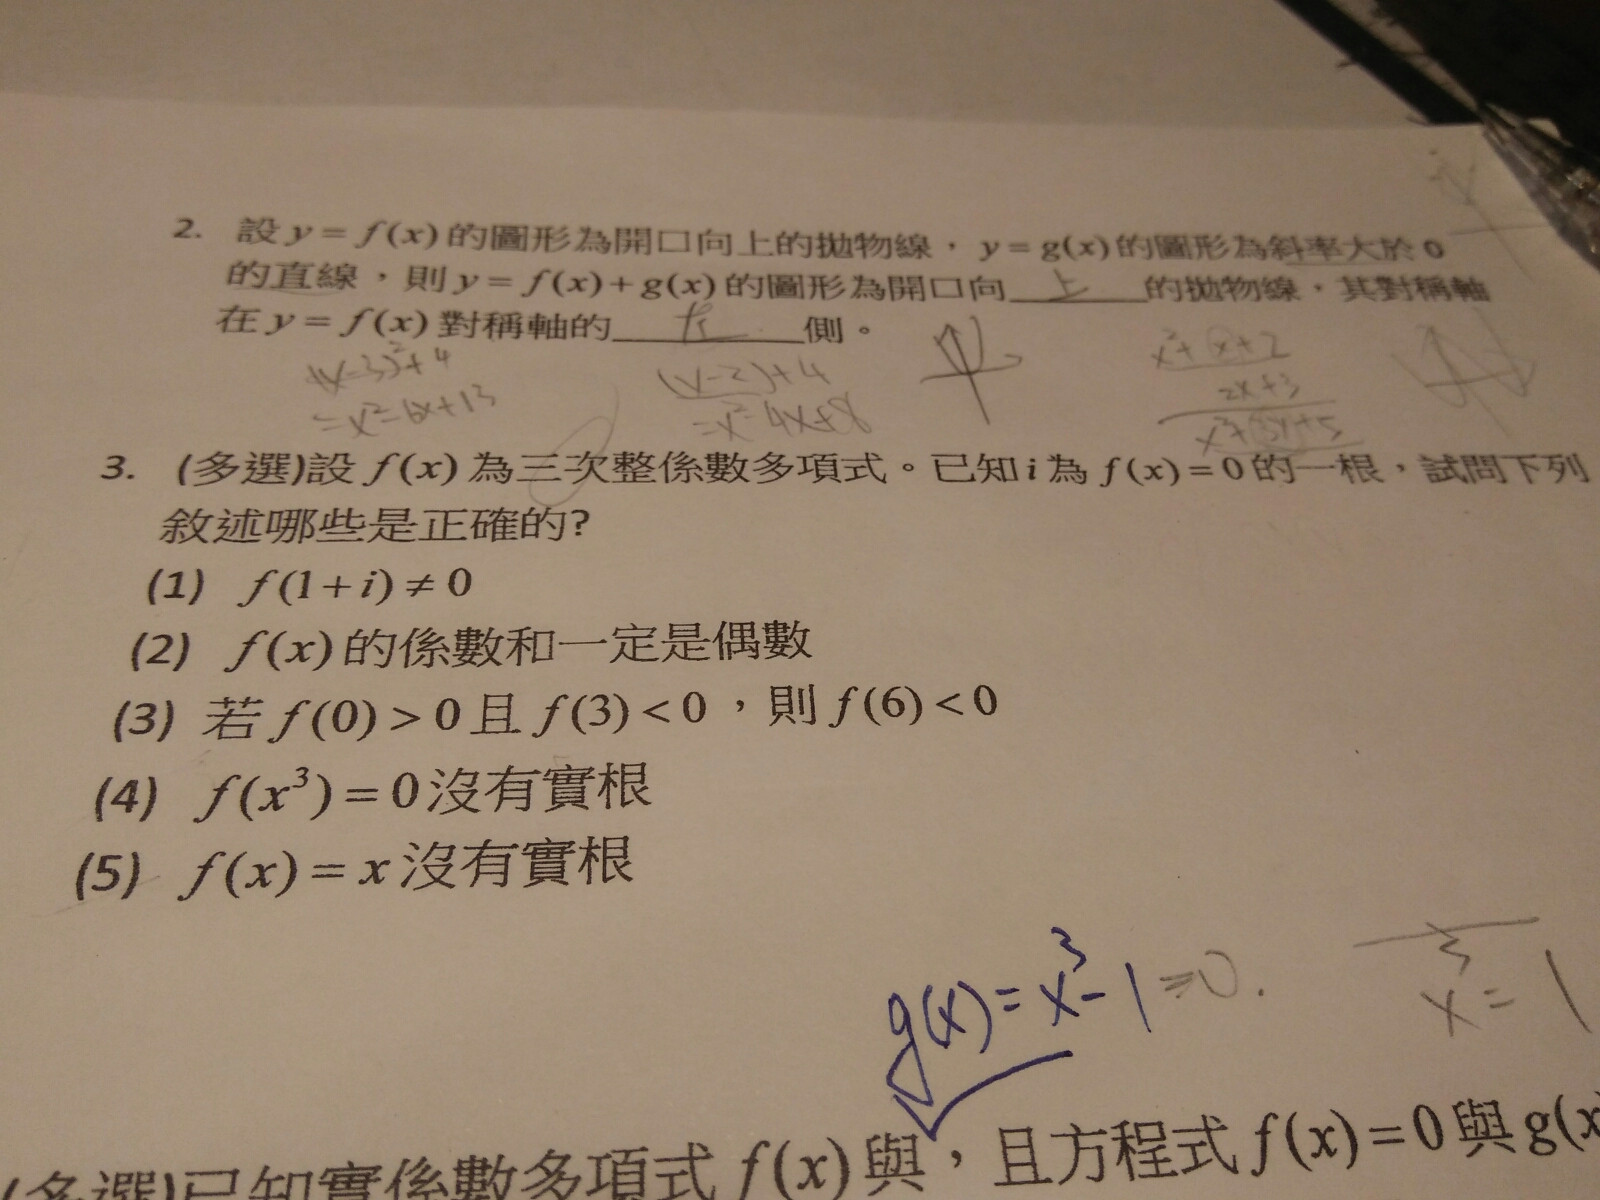 2. 設 y = f(x) 的圖形為開口向上的拋物線，y = g(x) 的圖形為斜率大於 0
的直線，則 y = f(x) + g(x) 的圖形為開口向 上 的拋物線，其對稱軸
在 y = f(x) 對稱軸的 側。
(x-3)²+4
= x²-6x+13
(x-2)²+4
= x²-4x+8
x²+x+2
2x+3
x²+3x+5
3. (多選)設 f(x) 為三次整係數多項式。已知 i 為 f(x) = 0 的一根，試問下列
敘述哪些是正確的?
(1) f(1+i) ≠ 0
(2) f(x) 的係數和一定是偶數
(3) 若 f(0) > 0 且 f(3) < 0，則 f(6) < 0
(4) f(x³) = 0 沒有實根
(5) f(x) = x 沒有實根
g(x) = x³ - 1 = 0.
x³ = 1
(多選)已知實係數多項式 f(x) 與，且方程式 f(x) = 0 與 g(x